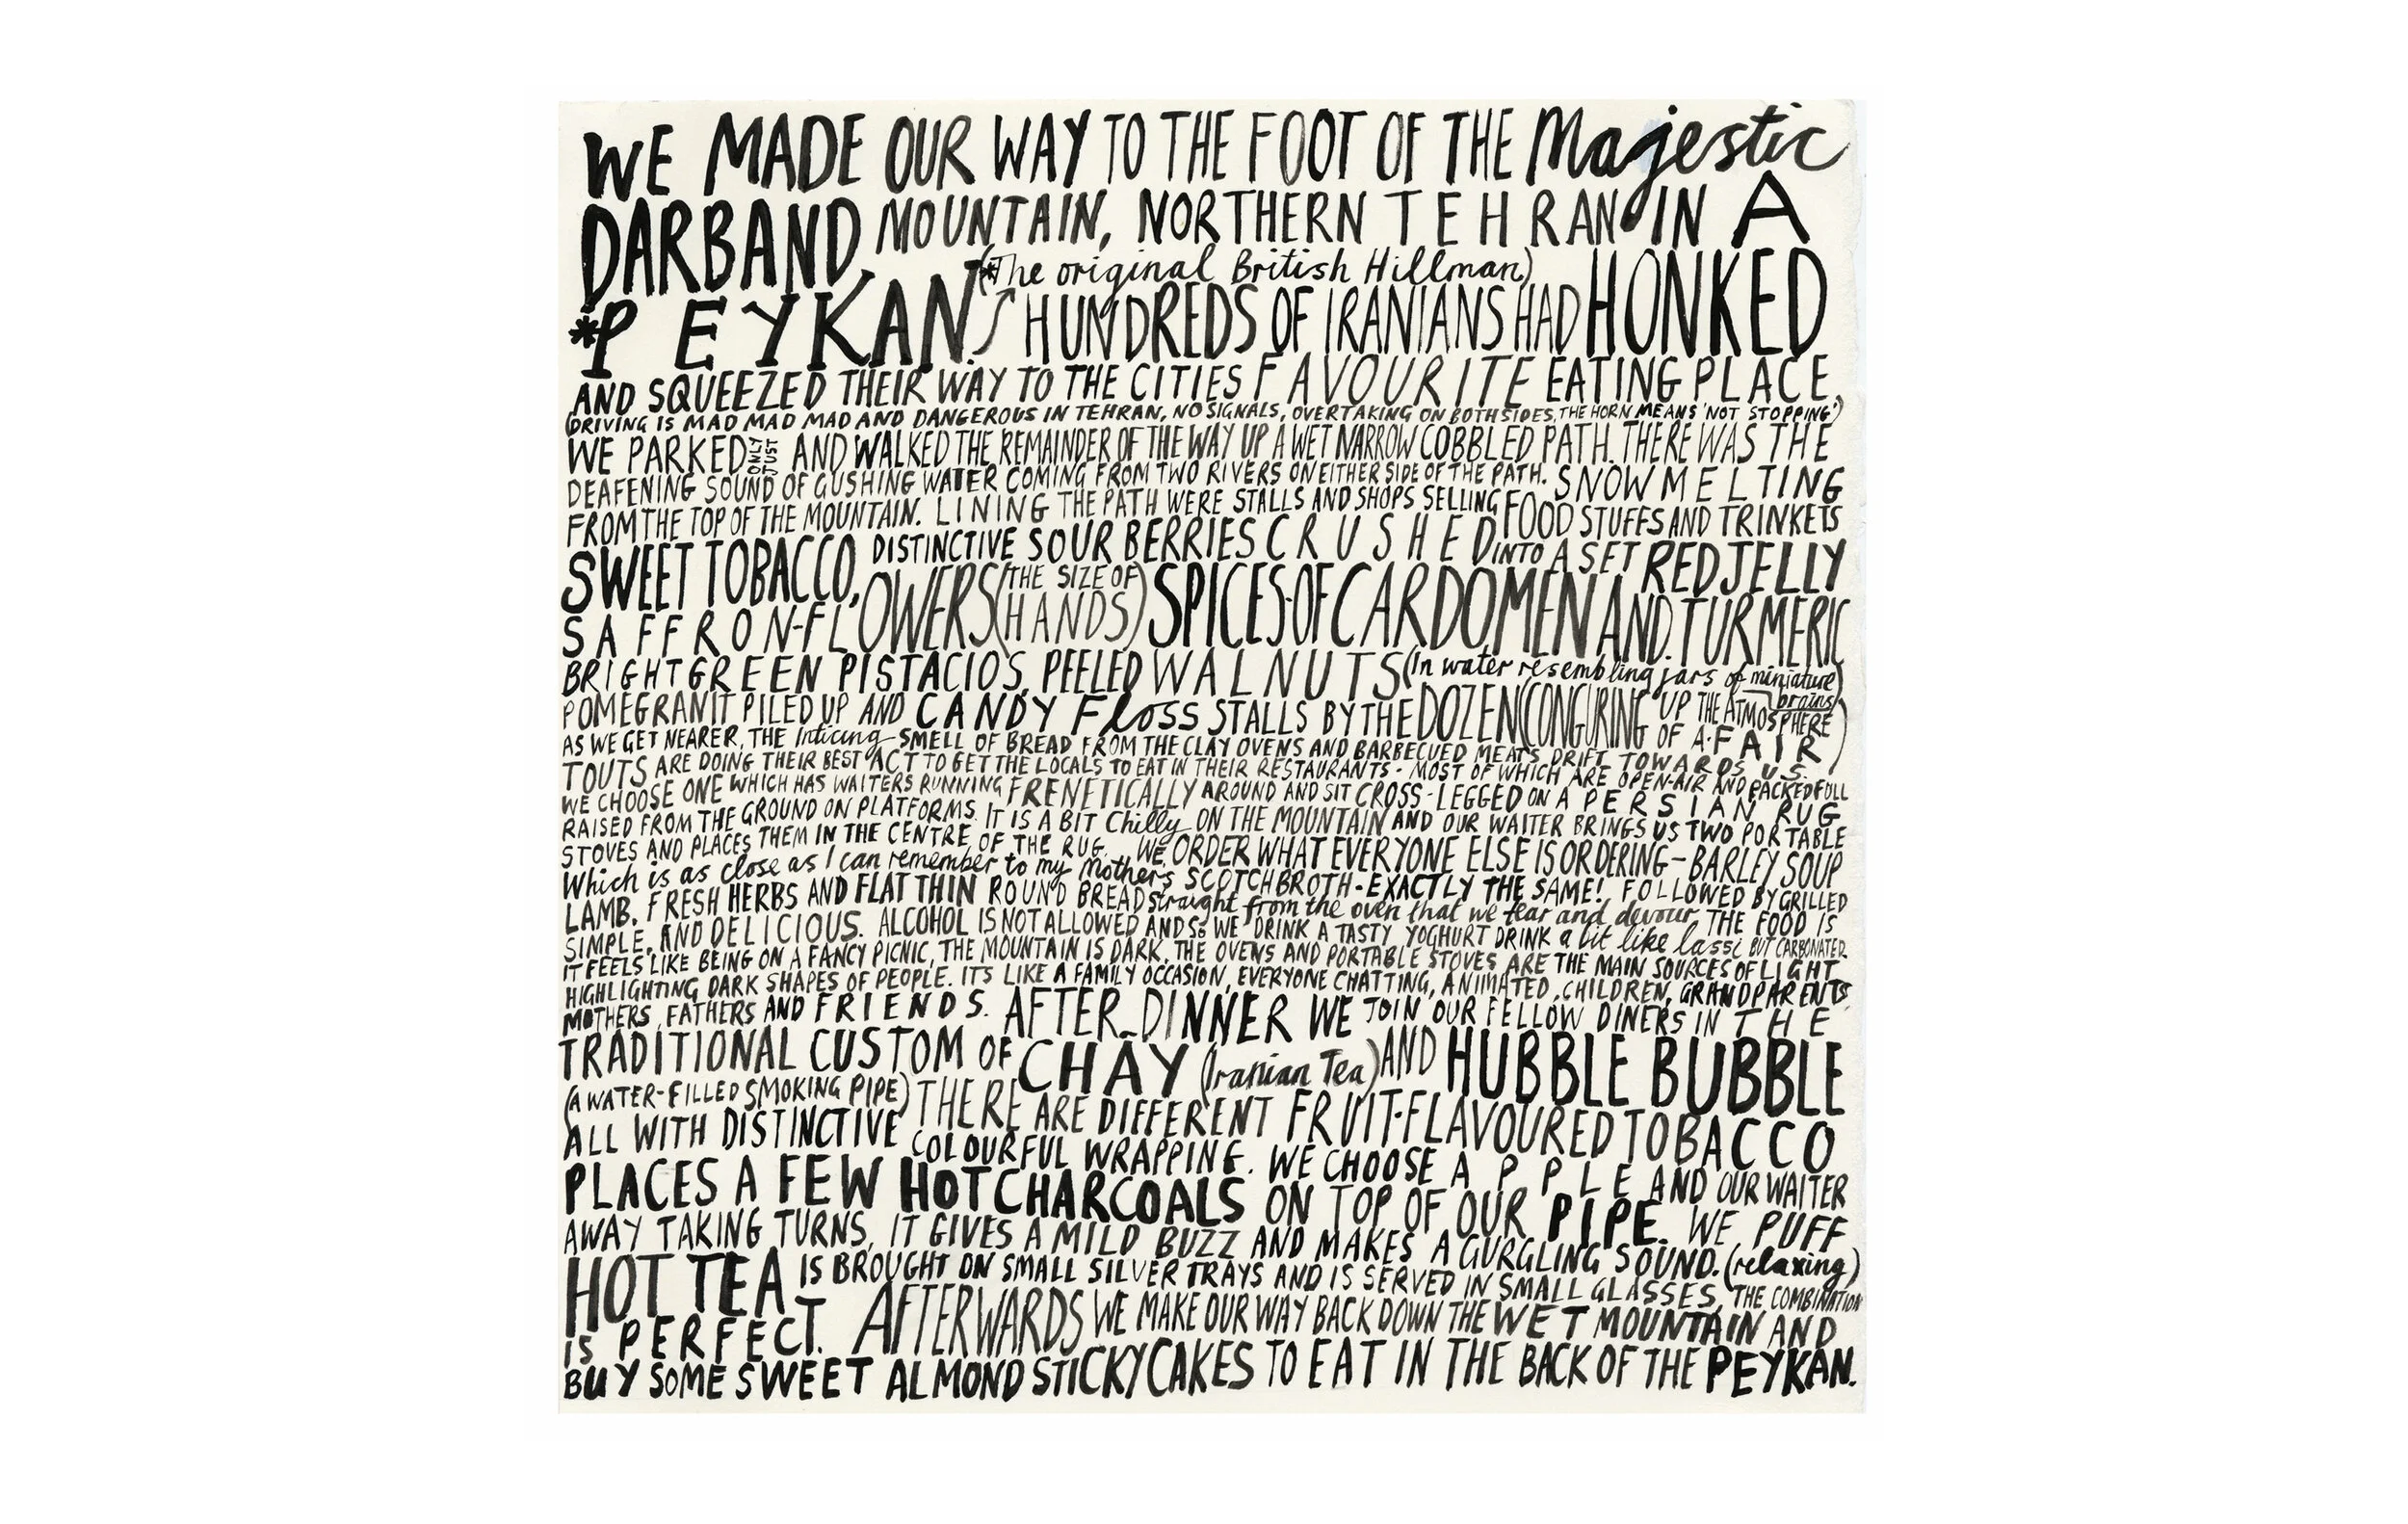 WE MADE OUR WAY TO THE FOOT OF THE Majestic
DARBAND MOUNTAIN, NORTHERN TEHRAN IN A
*PEYKAN (*The original British Hillman) HUNDREDS OF IRANIANS HAD HONKED
AND SQUEEZED THEIR WAY TO THE CITIES FAVOURITE EATING PLACE,
(DRIVING IS MAD MAD MAD AND DANGEROUS IN TEHRAN, NO SIGNALS, OVERTAKING ON BOTH SIDES, THE HORN MEANS 'NOT STOPPING')
WE PARKED ONLY JUST AND WALKED THE REMAINDER OF THE WAY UP A WET NARROW COBBLED PATH. THERE WAS THE
DEAFENING SOUND OF GUSHING WATER COMING FROM TWO RIVERS ON EITHER SIDE OF THE PATH. SNOW MELTING
FROM THE TOP OF THE MOUNTAIN. LINING THE PATH WERE STALLS AND SHOPS SELLING FOOD STUFFS AND TRINKETS
SWEET TOBACCO, DISTINCTIVE SOUR BERRIES CRUSHED INTO A SET RED JELLY
SAFFRON-FLOWERS (THE SIZE OF HANDS) SPICES-OF CARDOMEN AND TURMERIC
BRIGHT GREEN PISTACIOS, PEELED WALNUTS (In water resembling jars of miniature brains)
POMEGRANIT PILED UP AND CANDY FLOSS STALLS BY THE DOZEN (CONGURING UP THE ATMOSPHERE OF A FAIR)
AS WE GET NEARER, THE Inticing SMELL OF BREAD FROM THE CLAY OVENS AND BARBECUED MEATS DRIFT TOWARDS US.
TOUTS ARE DOING THEIR BEST ACT TO GET THE LOCALS TO EAT IN THEIR RESTAURANTS - MOST OF WHICH ARE OPEN-AIR AND PACKED FULL
WE CHOOSE ONE WHICH HAS WAITERS RUNNING FRENETICALLY AROUND AND SIT CROSS-LEGGED ON A PERSIAN RUG
RAISED FROM THE GROUND ON PLATFORMS. IT IS A BIT Chilly ON THE MOUNTAIN AND OUR WAITER BRINGS US TWO PORTABLE
STOVES AND PLACES THEM IN THE CENTRE OF THE RUG. WE ORDER WHAT EVERYONE ELSE IS ORDERING - BARLEY SOUP
Which is as close as I can remember to my Mothers SCOTCH BROTH - EXACTLY THE SAME! FOLLOWED BY GRILLED
LAMB, FRESH HERBS AND FLAT THIN ROUND BREAD straight from the oven that we tear and devour, THE FOOD IS
SIMPLE, AND DELICIOUS. ALCOHOL IS NOT ALLOWED AND SO WE DRINK A TASTY YOGHURT DRINK a bit like lassi BUT CARBONATED.
IT FEELS LIKE BEING ON A FANCY PICNIC, THE MOUNTAIN IS DARK. THE OVENS AND PORTABLE STOVES ARE THE MAIN SOURCES OF LIGHT
HIGHLIGHTING DARK SHAPES OF PEOPLE. ITS LIKE A FAMILY OCCASION, EVERYONE CHATTING, ANIMATED, CHILDREN, GRANDPARENTS
MOTHERS, FATHERS AND FRIENDS. AFTER DINNER WE JOIN OUR FELLOW DINERS IN THE
TRADITIONAL CUSTOM OF CHAY (Iranian Tea) AND HUBBLE BUBBLE
(A WATER-FILLED SMOKING PIPE) THERE ARE DIFFERENT FRUIT-FLAVOURED TOBACCO
ALL WITH DISTINCTIVE COLOURFUL WRAPPING. WE CHOOSE APPLE AND OUR WAITER
PLACES A FEW HOT CHARCOALS ON TOP OF OUR PIPE. WE PUFF
AWAY TAKING TURNS, IT GIVES A MILD BUZZ AND MAKES A GURGLING SOUND. (relaxing)
HOT TEA IS BROUGHT ON SMALL SILVER TRAYS AND IS SERVED IN SMALL GLASSES, THE COMBINATION
IS PERFECT. AFTERWARDS WE MAKE OUR WAY BACK DOWN THE WET MOUNTAIN AND
BUY SOME SWEET ALMOND STICKY CAKES TO EAT IN THE BACK OF THE PEYKAN.